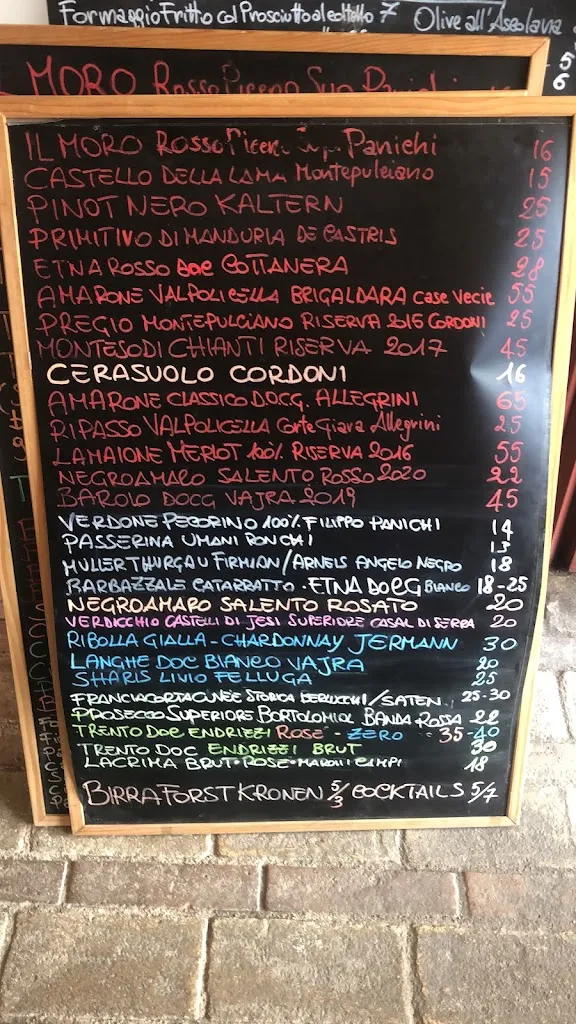 Formaggio Fritto col Prosciutto al coltello 7 Olive all'Ascolana
5
6
MORO Rosso Piceno Sup Panichi
IL MORO ROSSO Piceno Panichi 16
CASTELLO DELLA LAMA Montepulciano 15
PINOT NERO KALTERN 25
PRIMITIVO DI MANDURIA DE CASTRIS 25
ETNA ROSSO DOC COTTANERA 28
AMARONE VALPOLICELLA BRIGALDARA CASE VECIE 55
PREGIO MONTEPULCIANO RISERVA 2016 CORDONI 25
MONTESODI CHIANTI RISERVA 2017 45
CERASUOLO CORDONI 16
AMARONE CLASSICO DOCG. ALLEGRINI 65
RIPASSO VALPOLICELLA Corte Giara Allegrini 25
LAMAIONE MERLOT 100% RISERVA 2016 55
NEGROAMARO SALENTO ROSSO 2020 22
BAROLO DOCG VAJRA 2019 45
VERDONE PECORINO 100% FILIPPO PANICHI 14
PASSERINA UMANI RONCHI 13
MULLER THURGAU FIRMIAN/ARNEIS ANGELO NEGRO 18
BARBAZZALE CATARRATTO - ETNA DOCG BIANCO 18-25
NEGROAMARO SALENTO ROSATO 20
VERDICCHIO CASTELLI DI JESI SUPERIORE CASAL DI SERRA 20
RIBOLLA GIALLA - CHARDONNAY JERMANN 30
LANGHE DOC BIANCO VAJRA 20
SHARIS LIVIO FELLUGA 25
FRANCIACORTA CUVÉE STORICA BERLUCCHI/SATEN 25-30
PROSECCO SUPERIORE BORTOLOMIOL BANDA ROSSA 22
TRENTO DOC ENDRIZZI ROSÉ - ZERO 35-40
TRENTO DOC ENDRIZZI BRUT 30
LACRIMA BRUT-ROSE-MAROTTI CAMPI 18
BIRRA FORST KRONEN 5/3 COCKTAILS 5/7